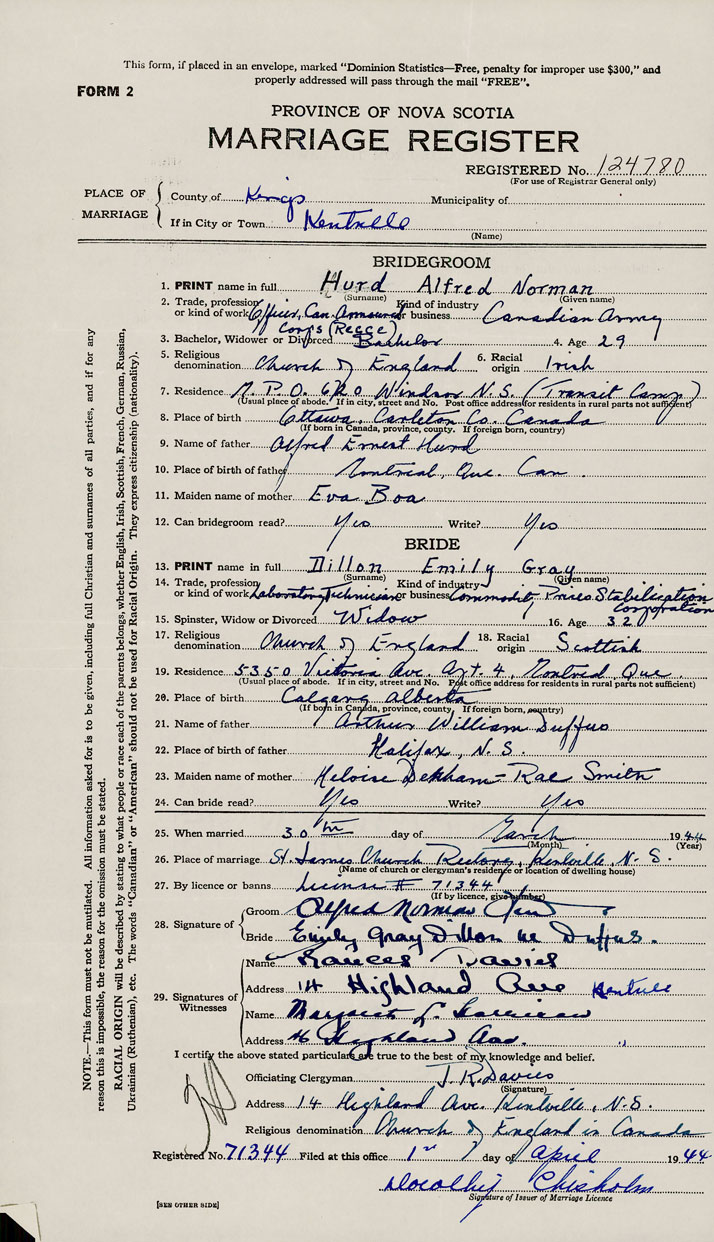 This form, if placed in an envelope, marked "Dominion Statistics—Free, penalty for improper use $300," and
properly addressed will pass through the mail "FREE".
FORM 2
PROVINCE OF NOVA SCOTIA
MARRIAGE REGISTER
REGISTERED No. 124780
(For use of Registrar General only)
PLACE OF MARRIAGE
County of Kings Municipality of
If in City or Town Kentville
(Name)
BRIDEGROOM
1. PRINT name in full Hurd Alfred Norman
(Surname) (Given name)
2. Trade, profession or kind of work Officer, Can. Armoured Corps (Recce) Kind of industry or business Canadian Army
3. Bachelor, Widower or Divorced Bachelor 4. Age 29
5. Religious denomination Church of England 6. Racial origin Irish
7. Residence M.P.O. 620 Windsor N.S. (Transit Camp)
(Usual place of abode. If in city, street and No. Post office address for residents in rural parts not sufficient)
8. Place of birth Ottawa, Carleton Co. Canada
(If born in Canada, province, county. If foreign born, country)
9. Name of father Alfred Ernest Hurd
10. Place of birth of father Montreal, Que. Can.
11. Maiden name of mother Eva Boa
12. Can bridegroom read? Yes Write? Yes
BRIDE
13. PRINT name in full Dillon Emily Gray
(Surname) (Given name)
14. Trade, profession or kind of work Laboratory Technician Kind of industry or business Commodity Prices Stabilization Corporation
15. Spinster, Widow or Divorced Widow 16. Age 32
17. Religious denomination Church of England 18. Racial origin Scottish
19. Residence 5350 Victoria Ave. Apt. 4, Montreal Que.
(Usual place of abode. If in city, street and No. Post office address for residents in rural parts not sufficient)
20. Place of birth Calgary Alberta
(If born in Canada, province, county. If foreign born, country)
21. Name of father Arthur William Duffus
22. Place of birth of father Halifax, N.S.
23. Maiden name of mother Heloise Rae Smith
24. Can bride read? Yes Write? Yes
25. When married 30th day of March 1944
(Month) (Year)
26. Place of marriage St. James Church Rectory, Kentville, N.S.
(Name of church or clergyman's residence or location of dwelling house)
27. By licence or banns License # 71344
(If by licence, give number)
28. Signature of
Groom Alfred Norman Hurd
Bride Emily Gray Dillon née Duffus.
29. Signatures of Witnesses
Name Frances Davies
Address 14 Highland Ave Kentville
Name Margaret L.
Address 46 Highland Ave. "
I certify the above stated particulars are true to the best of my knowledge and belief.
Officiating Clergyman J.R. Davies
(Signature)
Address 14 Highland Ave. Kentville, N.S.
Religious denomination Church of England in Canada
Registered No. 71344 Filed at this office 1st day of April 1944
Dorothy Chisholm
Signature of Issuer of Marriage Licence
[SEE OTHER SIDE]
NOTE.—This form must not be mutilated. All information asked for is to be given, including full Christian and surnames of all parties, and if for any
reason this is impossible, the reason for the omission must be stated.
RACIAL ORIGIN will be described by stating to what people or race each of the parents belongs, whether English, Irish, Scottish, French, German, Russian,
Ukrainian (Ruthenian), etc. The words "Canadian" or "American" should not be used for Racial Origin. They express citizenship (nationality).